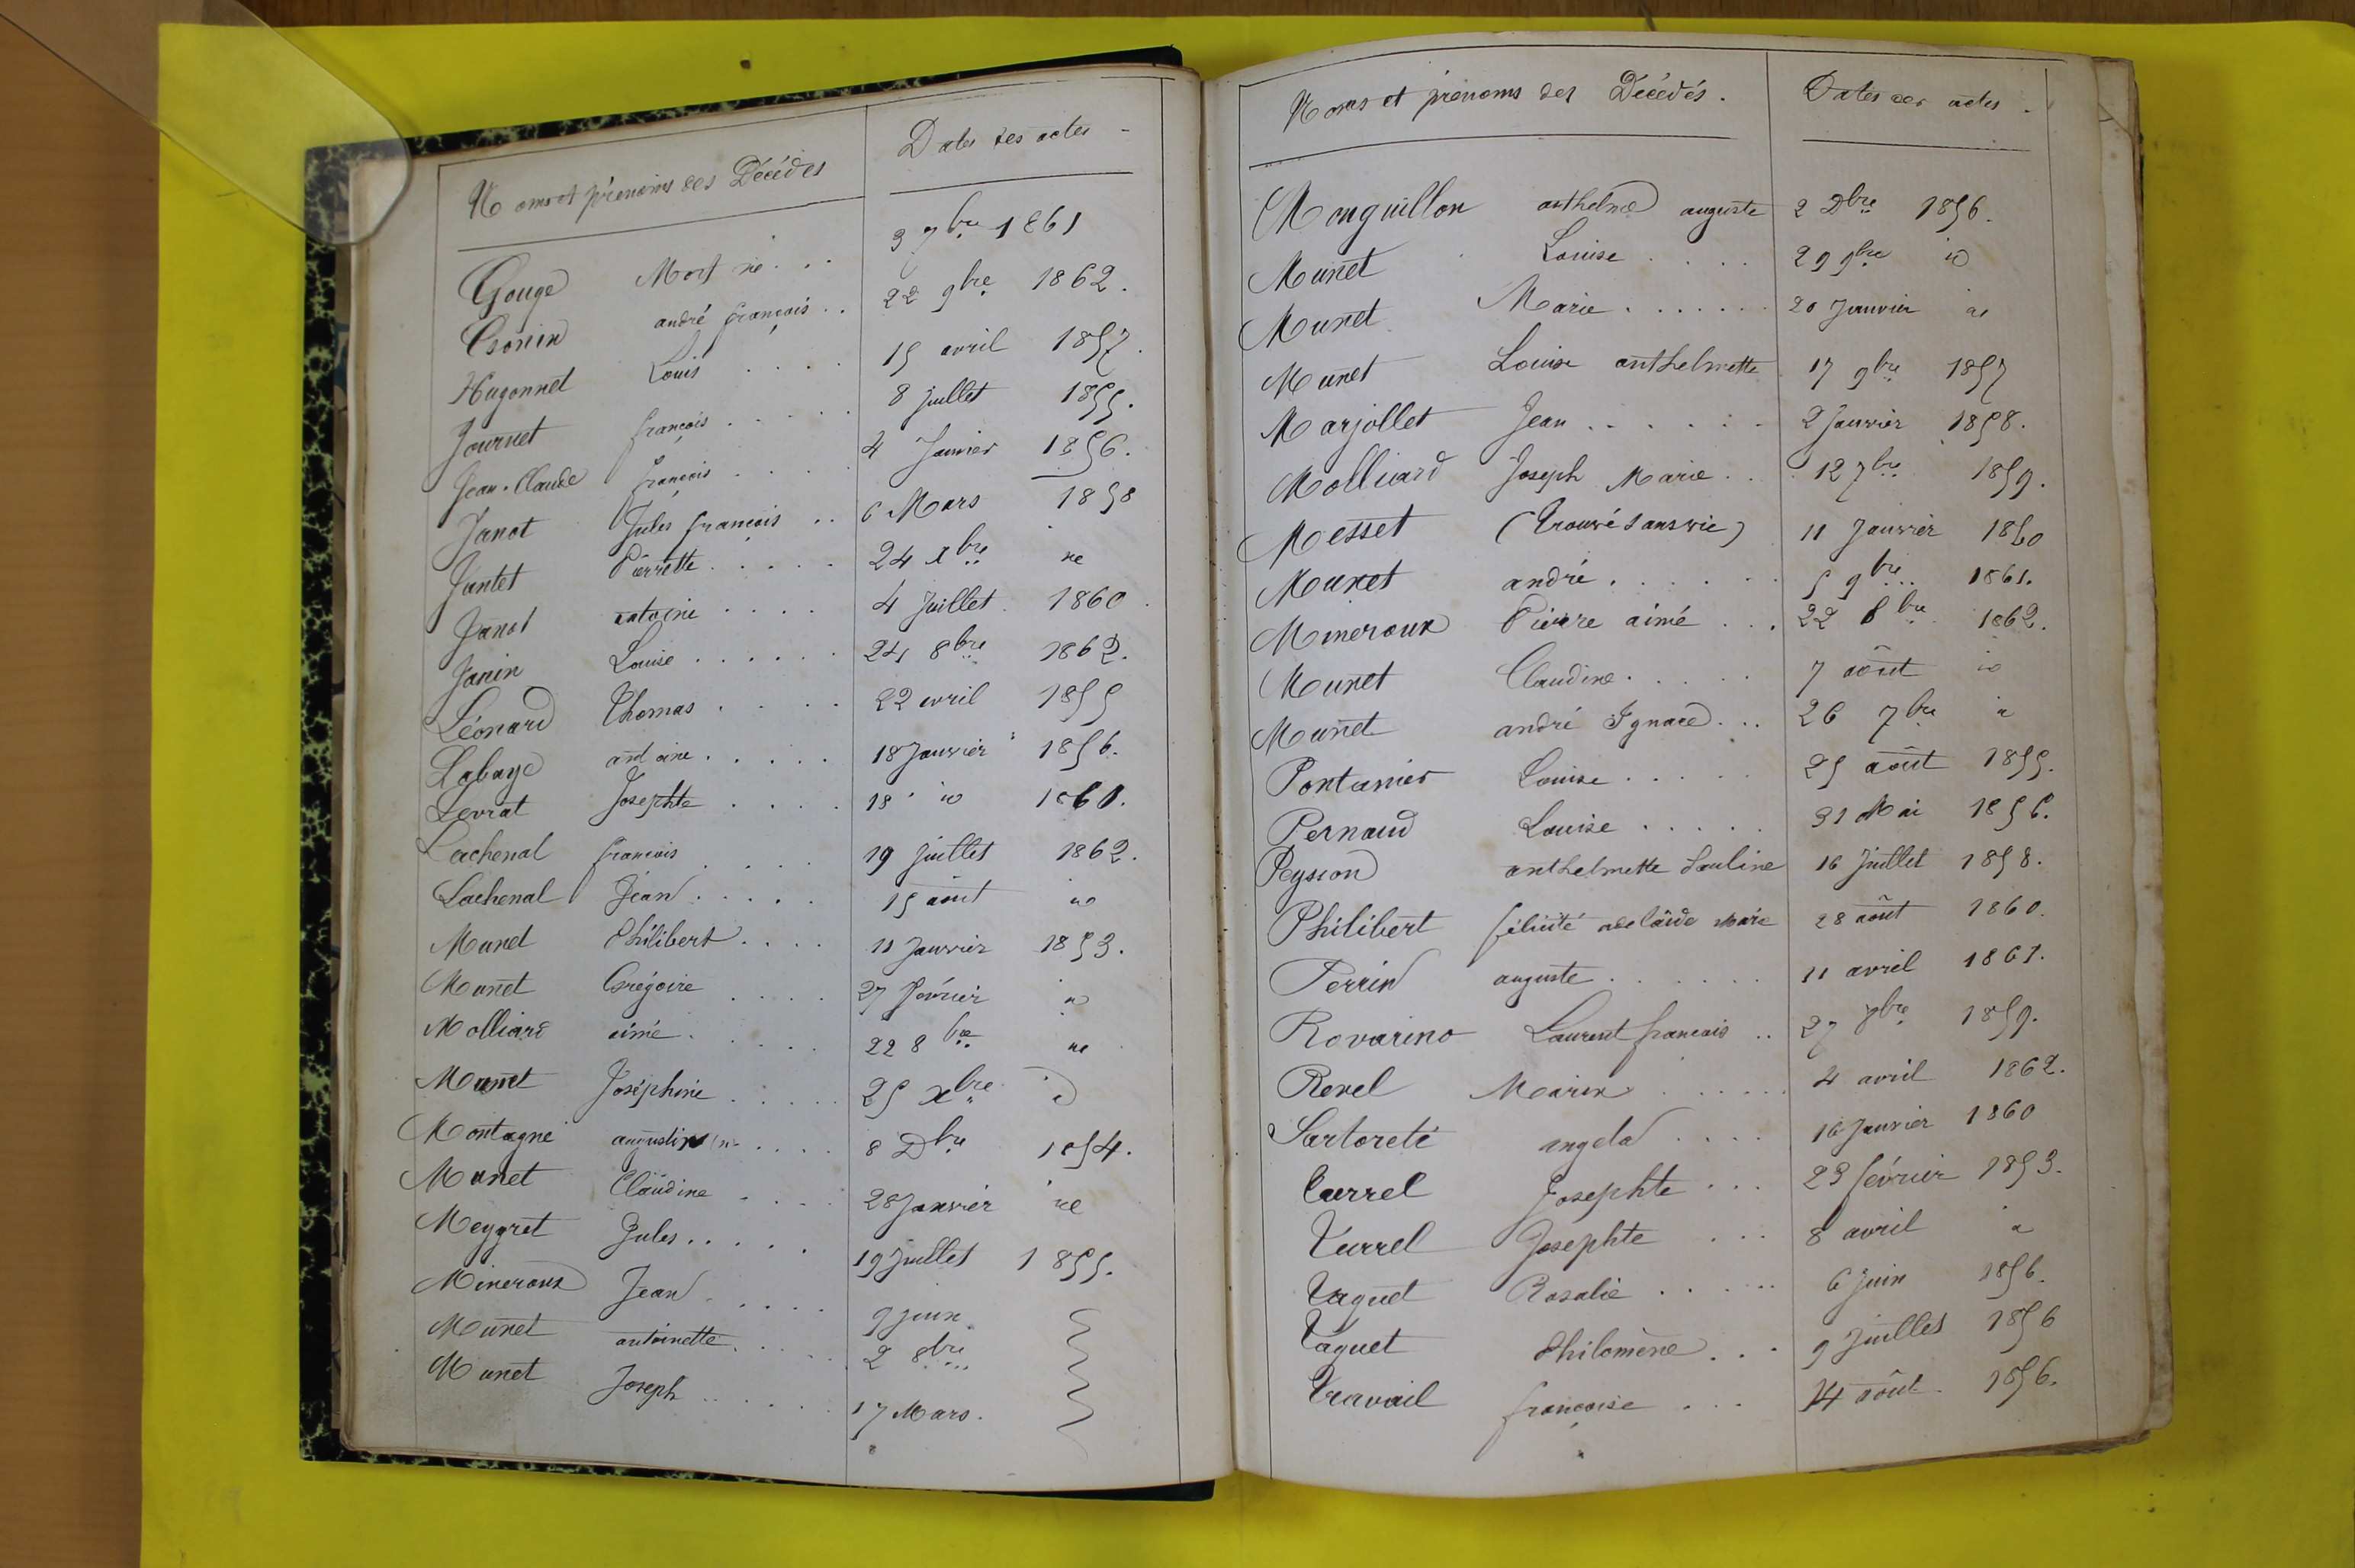 Noms et prénoms des Décédés Dates des actes
Gouge Mort né 3 7bre 1861
Gonin andré françois 22 9bre 1862.
Hugonnet Louis 15 avril 1857.
Journet françois 8 juillet 1855.
Jean-Claude françois 4 Janvier 1856.
Janot Jules françois 6 Mars 1858
Jantet Pierrette 24 xbre
Janot antoine 4 Juillet 1860
Janin Louise 24 8bre 1862.
Léonard Thomas 22 avril 1855
Labaye antoine 18 Janvier 1856.
Levrat Josephte 18 id 1861.
Lachenal françois 19 juillet 1862.
Lachenal Jean 15 août id
Munet Philibert 11 Janvier 1853.
Munet Grégoire 27 février id
Molliard aimé 22 8bre
Munet Joséphine 25 xbre id
Montagne 8 Dbre 1854.
Munet Claudine 28 Janvier
Meygret Jules 19 Juillet 1855.
Mineroux Jean 9 juin
Munet antoinette 2 8bre
Munet Joseph 17 Mars.
Noms et prénoms des Décédés. Dates des actes.
Monguillon anthelme auguste 2 Dbre 1856.
Munet Louise 29 9bre id
Munet Marie 20 Janvier id
Munet Louise anthelmette 17 9bre 1857
Marjollet Jean 2 Janvier 1858.
Molliard Joseph Marie 12 7bre 1859.
Messet (Trouvé sans vie) 11 Janvier 1860
Munet andré 5 9bre 1861.
Mineroux Pierre aimé 22 8bre 1862.
Munet Claudine 7 août id
Munet andré Ignace 26 7bre
Pontanier Louise 25 août 1855.
Pernaud Louise 31 Mai 1856.
Peysson anthelmette Pauline 16 Juillet 1858.
Philibert félicité adelaïde Marie 28 août 1860.
Perrin auguste 11 avril 1861.
Rovarino Laurent francais 27 1859.
Revel Marin 4 avril 1862.
Sartoreti angela 16 Janvier 1860
Turrel Josephte 23 février 1853.
Turrel Josephte 8 avril
Taguet Rosalie 6 Juin 1856.
Taguet Philomène 9 Juillet 1856
Travail françoise 14 août 1856.